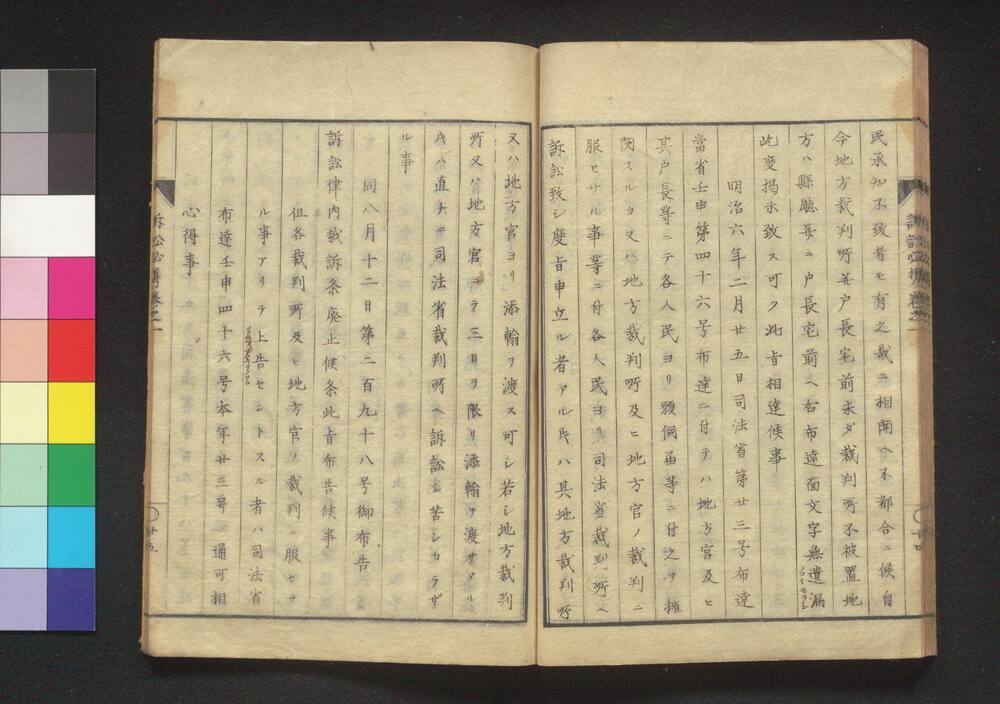 民承知不致者モ有之哉ニ相聞ヘ不都合ニ候自
今地方裁判所并戸長宅前未ダ裁判所不被置地
方ハ縣聽并ニ戸長宅前ヘ右布達面文字無遺漏
此度掲示致ス可ク此旨相達候事
明治六年二月廿五日司法省第廿三号布達
當省壬申第四十六号布達ニ付テハ地方官及ヒ
其戸長等ニテ各人民ヨリ願伺届等ニ付之ヲ擁
閉スルカ又ハ地方裁判所及ヒ地方官ノ裁判ニ
服セサル事等ニ付各人民ヨリ司法省裁判所ヘ
訴訟致シ度旨申立ル者アル片ハ其地方裁判所
訴訟必携卷之一
廿四
又ハ地方官ヨリ添翰ヲ渡ス可シ若シ地方裁判
所又ハ地方官ニテ三日ヲ限リ添翰ヲ渡サヾル
片ハ直チニ司法省裁判所ヘ訴訟シ苦シカラザ
ル事
同八月十二日第二百九十八号御布告
訴訟律内越訴条廃止候条此旨布告候事
但各裁判所及ヒ地方官ノ裁判ニ服セサ
ル事アリテ上告セントスル者ハ司法省
布達壬申四十六号本年廿三号ノ通可相
心得事
訴訟必携卷之一
廿五